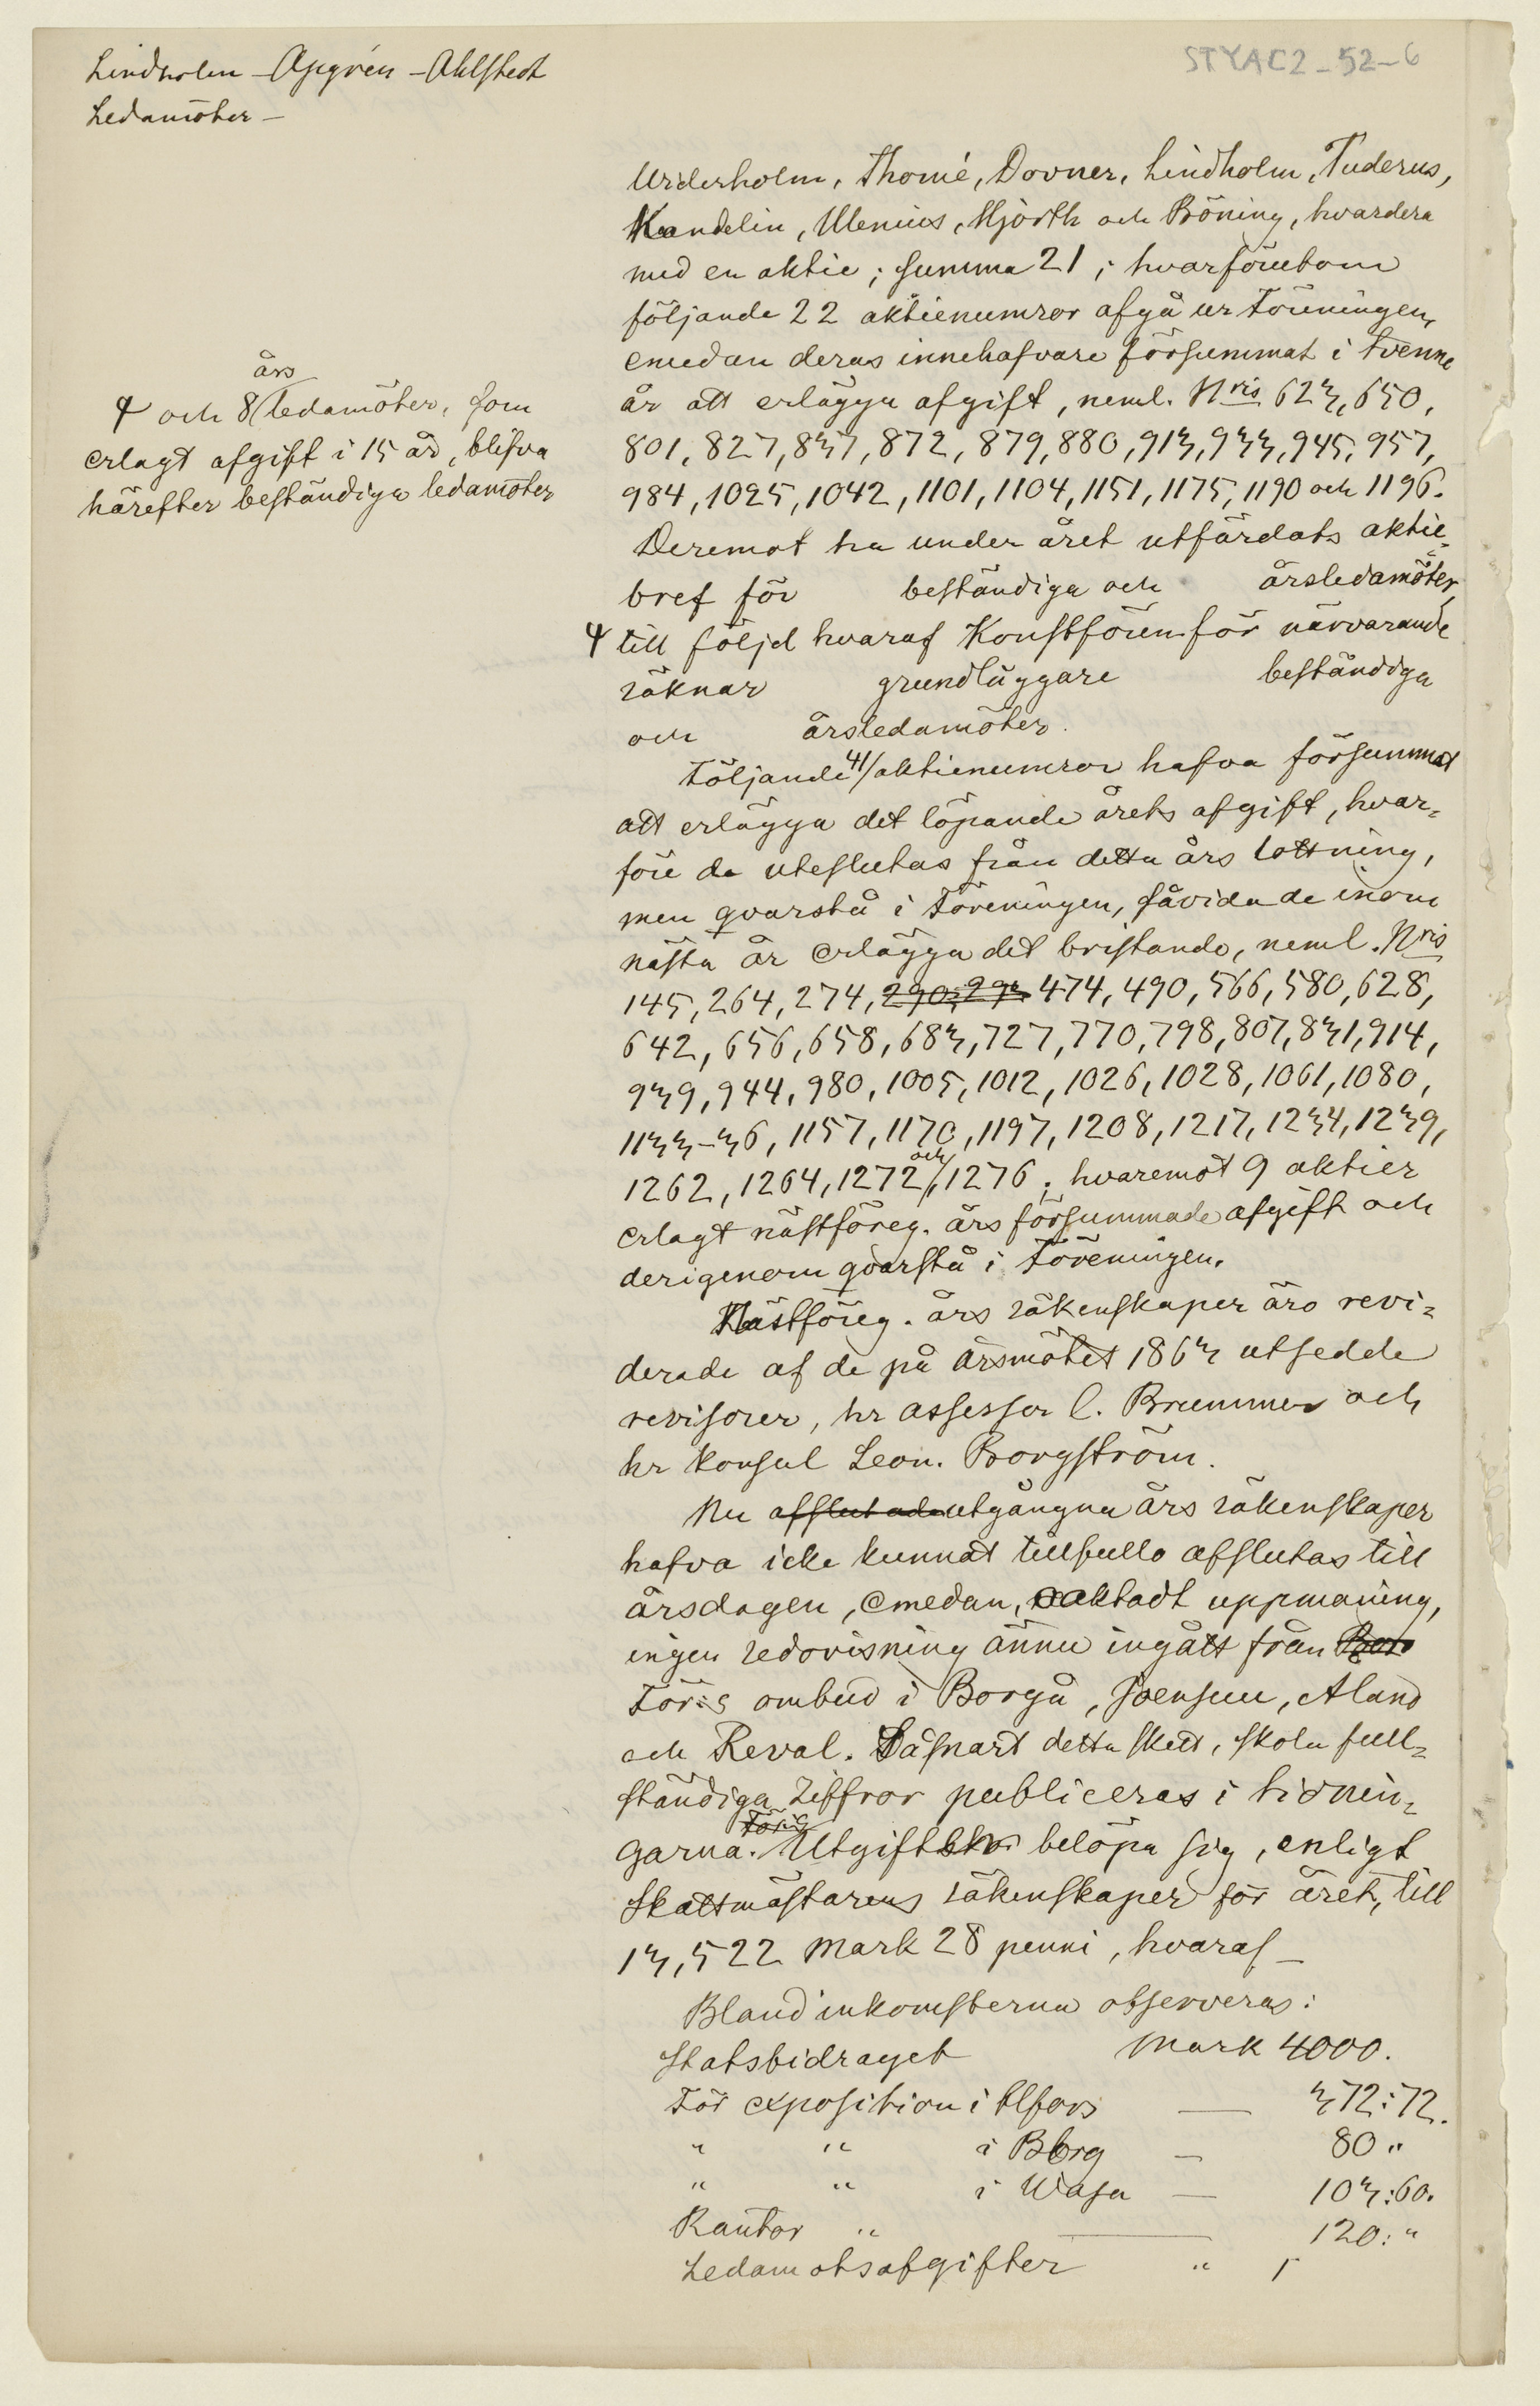 Lindholm – Aspgrén – Ahlstedt
Ledamöter –
STYAC2-52-6
Urderholm, Thomé, Dovner, Lindholm, Tuderus,
Kandelin, Ulenius, Hjorth och Böning, hvardera
med en aktie; summa 21; hvarförutom
följande 22 aktienumror afgå ur Föreningen,
emedan deras innehafvare försummat i tvenne
år att erlägga afgift, neml. Nris 623, 650,
801, 827, 837, 872, 879, 880, 913, 933, 945, 957,
984, 1025, 1042, 1101, 1104, 1151, 1175, 1190 och 1196.
Deremot ha under året utfärdats aktie-
bref för beständiga och årsledamöter,
års
och 8 ledamöter, som
erlagt afgift i 15 år, blifva
härefter beständiga ledamöter
till följd hvaraf Konstfören för närvarande
räknar grundläggare beständiga
och årsledamöter.
Följande 41 aktienumror hafva försummat
att erlägga det löpande årets afgift, hvar-
före de uteslutas från detta års lottning,
men qvarstå i Föreningen, såvida de inom
nästa år erlägga det bristande, neml. Nris
145, 264, 274, 290, 293 474, 490, 566, 580, 628,
642, 656, 658, 683, 727, 770, 798, 807, 831, 914,
939, 944, 980, 1005, 1012, 1026, 1028, 1061, 1080,
1133–36, 1157, 1170, 1197, 1208, 1217, 1234, 1239,
1262, 1264, 1272 och 1276; hvaremot 9 aktier
erlagt nästföreg. års försummade afgift och
derigenom qvarstå i Föreningen.
Nästföreg. års räkenskaper äro revi-
derade af de på årsmötet 1863 utsedde
revisorer, hr assessor C. Brummer och
hr konsul Leon. Borgström.
Nu afslutade utgångna års räkenskaper
hafva icke kunnat tillfullo afslutas till
årsdagen, emedan, oaktadt uppmaning,
ingen redovisning ännu ingått från
För:s ombud i Borgå, Joensuu, Åland
och Reval. Såsnart detta skett, skola full-
ständiga ziffror publiceras i tidnin-
garna. För:s Utgifter belöpa sig, enligt
Skattmästarens räkenskaper för året, till
13,522 mark 28 penni, hvaraf –
Bland inkomsterna observeras:
Statsbidraget mark 4000.
För exposition i Hlfors — 372:72.
" " i Bborg – 80 "
" " i Wasa — 103:60.
Räntor " — 120: "
Ledamotsafgifter "